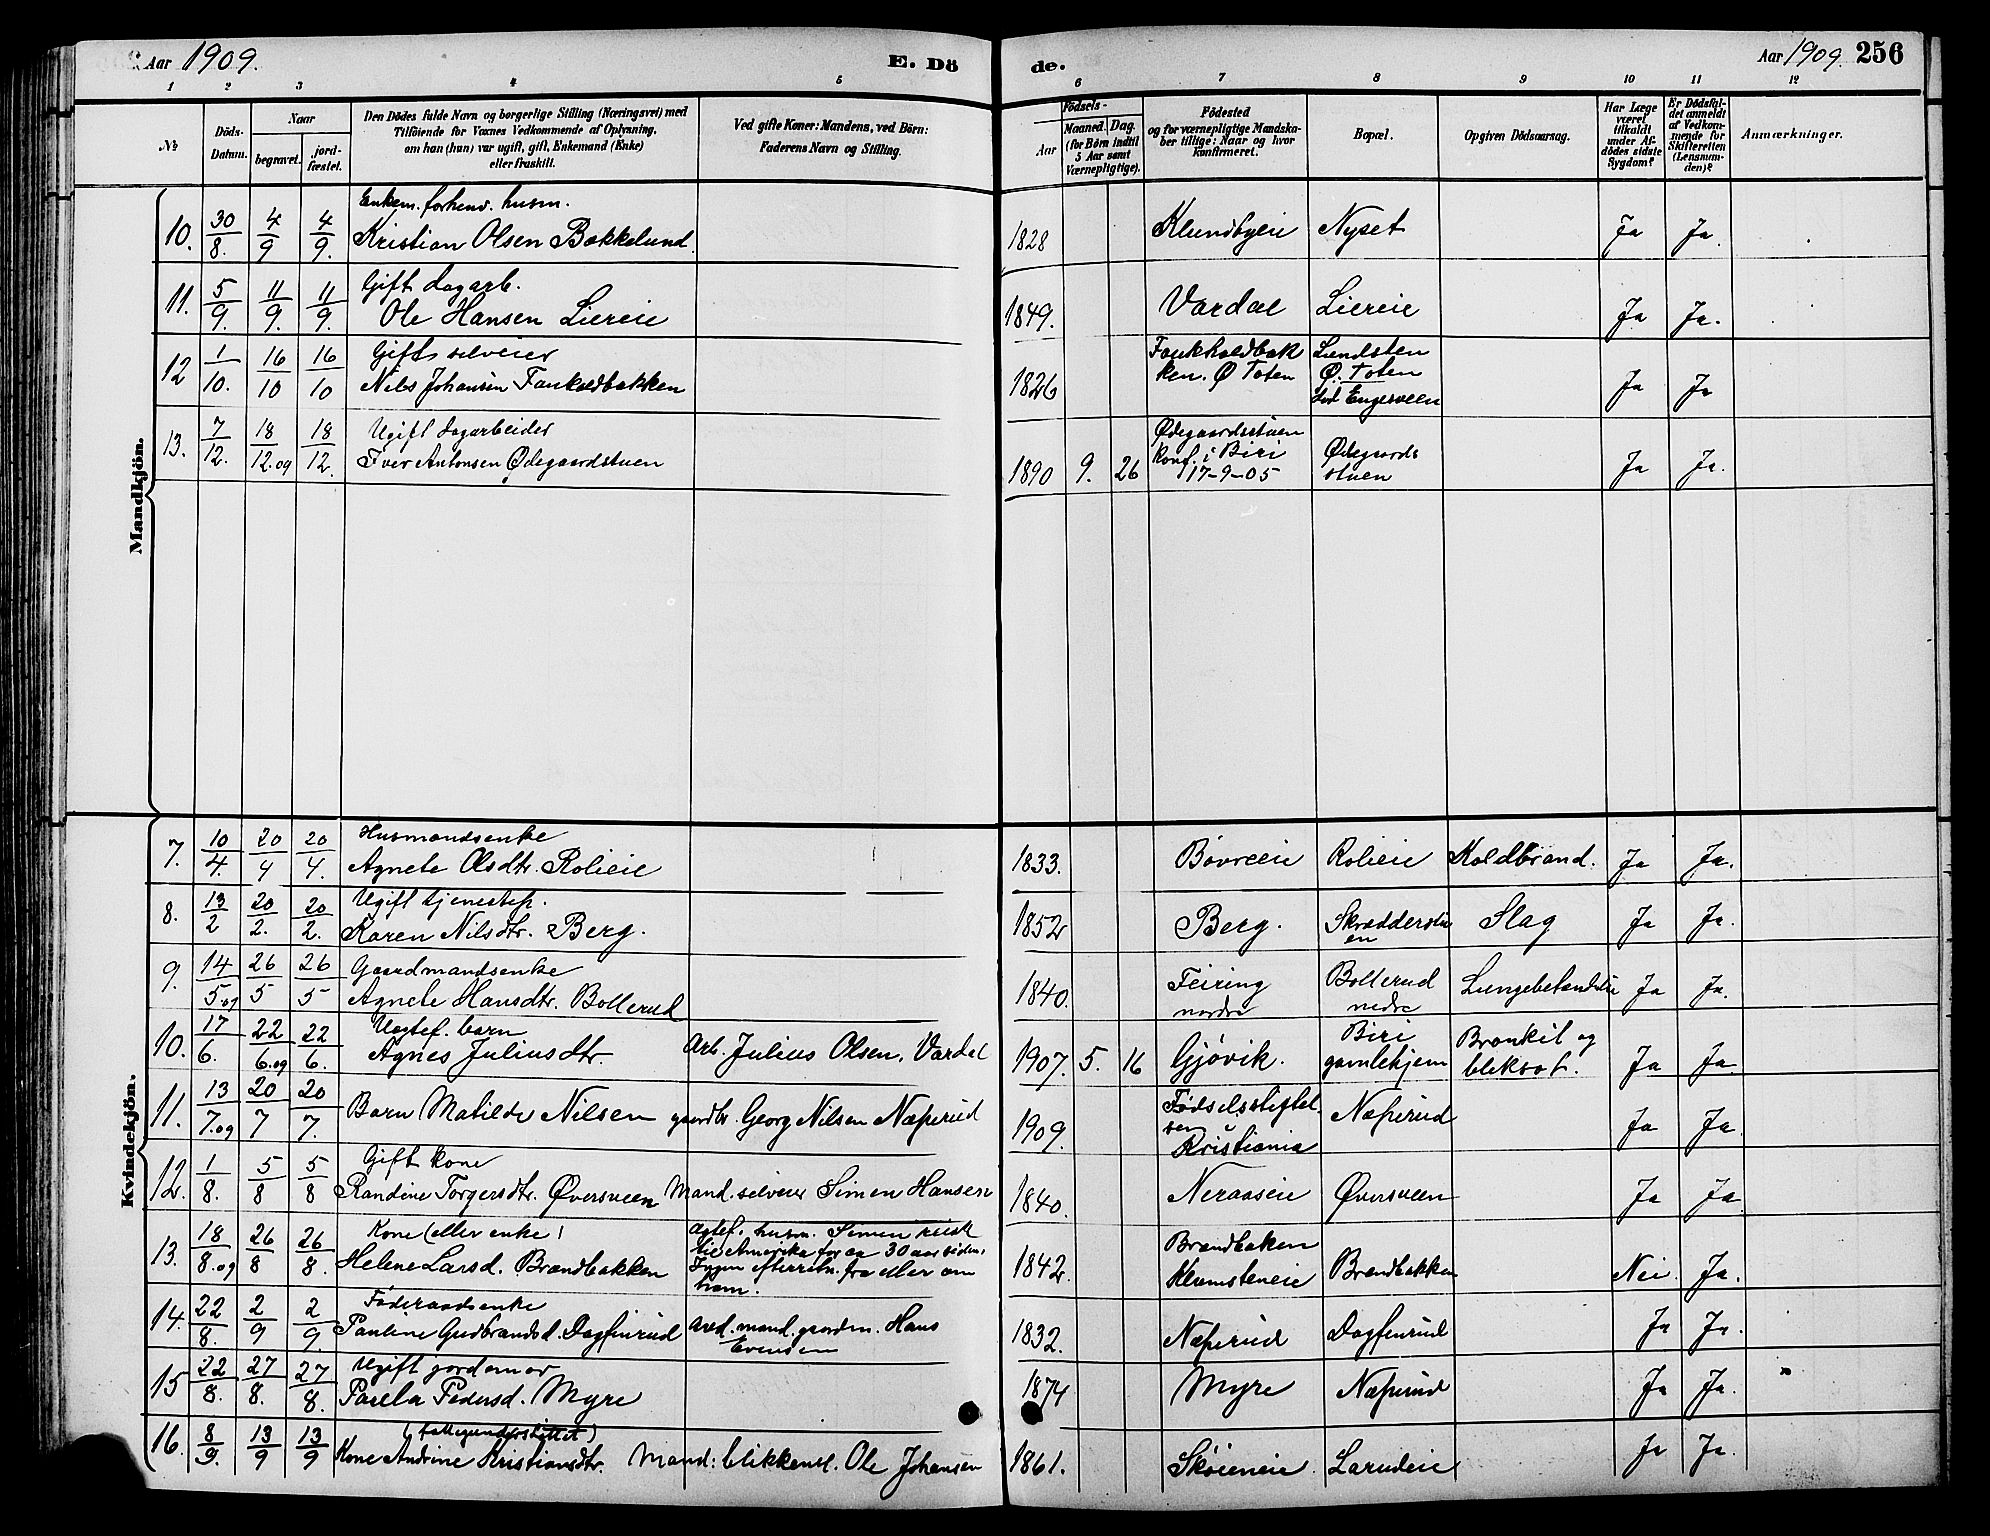 Aar 1909.
E. Dö
de.
Aar 1909. 256
1 2 3 4 5 6 7 8 9 10 11 12
No
Döds-
Datum.
Naar
begravet.
jord-
fæstet.
Den Dödes fulde Navn og borgerlige Stilling (Næringsvei) med
Tilföiende for Voxnes Vedkommende af Oplysning,
om han (hun) var ugift, gift, Enkemand (Enke)
eller fraskilt.
Ved gifte Koner: Mandens, ved Börn:
Faderens Navn og Stilling.
Födsels-
Aar
Maaned. Dag.
(for Börn indtil
5 Aar samt
Værnepligtige).
Födested
og for værnepligtige Mandska-
ber tillige: Naar og hvor
Konfirmeret.
Bopæl.
Opgiven Dödsaarsag.
Har Læge
været
tilkaldt
under Af-
dödes sidste
Sygdom?
Er Dödsfal-
det anmeldt
af Vedkom-
mende for
Skifteretten
(Lensman-
den)?
Anmærkninger.
Mandkjön.
Enkem. forhenv. husm.
10. 30/8. 4/9 4/9. Kristian Olsen Bakkelund 1828 Klundbyeie Nyset Ja Ja.
Gift dagarb.
11. 5/9. 11/9. 11/9. Ole Hansen Liereie 1849. Vardal Liereie Ja Ja.
Gift selveier
12 1/10. 16/10 16/10 Nils Johansen Faukoldbakken 1826 Faukholdbak
ken. Ø Toten
Lundsten
Ø. Toten
Engesveen
Ja Ja
Ugift dagarbeider
13. 7/12. 18/12.09 18/12. Iver Antonsen Ødegaardstuen 1890 9. 26 Ødegaardsstuen
Konf. i Biri
17-9-05
Ødegaards
stuen
Ja Ja.
Kvindekjön.
Husmandsenke
7. 10/4. 20/4 20/4. Agnete Olsdtr. Rolieie 1833. Bøvreeie Rolieie Koldbrand. Ja Ja.
Ugift tjenestep.
8. 13/2 20/2. 20/2. Karen Nilsdtr. Berg. 1852 Berg. Skrædderstu
en
Slag Ja Ja.
Gaardmandsenke
9. 14/5.09 26/5 26/5 Agnete Hansdtr. Bollerud 1840. Feiring
nordre
Bollerud
nedre
Lungebetændelse Ja Ja.
Uegtef. barn
10. 17/6. 22/6.09 22/6. Agnes Juliusdtr. Arb. Julius Olsen, Vardal 1907. 5. 16 Gjøvik. Biri
gamlehjem
Bronkit og
bleksot.
Ja Ja.
11. 13/7.09 20/7 20/7. Barn Matilde Nilsen gaardbr. Georg Nilsen Næperud 1909. Fødselsstiftel
sen i
Kristiania
Næperud Ja Ja.
Gift kone
12. 1/8. 5/8 5/8 Randine Torgersdtr. Øversveen Mand. selveier Simen Hansen 1840. Neraaseie Øversveen Ja Ja
Kone (eller enke)
13. 18/8.09 26/8 26/8. Helene Larsd. Brændbakken Ægtef. husm. Simen reist
til Amerika for ca 30 aar siden.
Ingen efterretn. fra eller om
ham.
1842. Brændbaken
Kremsteneie
Brændbakken Nei. Ja.
Føderaadsenke
14. 22/8. 2/9 2/9. Pauline Gudbrandsd. Dagfinrud Avd. mand. gaardm. Hans
Evensen
1832. Næperud Dagfinrud Ja Ja.
Ugift jordmor
15 22/8. 27/8. 27/8. Paula Pedersd. Myre 1874 Myre Næperud Ja Ja.
(fattigunderstöttet)
16. 8/9. 13/9 13/9 Kone Andrine Kristiansdtr. Mand: blikkensl. Ole Johansen 1861. Skøieneie Larudeie Ja Ja.